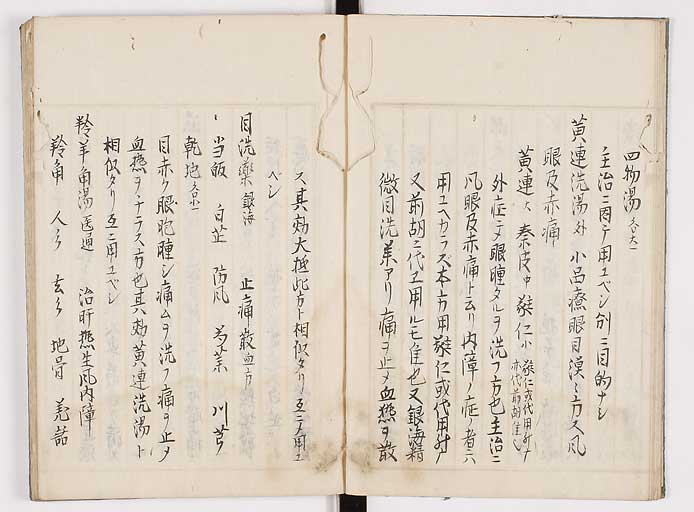 四物湯 各大一
主治ニ因テ用ユベシ別ニ目的ナシ
黄連洗湯 外 小品療眼目漠々方又風
眼及赤痛
黄連大 秦皮中 蕤仁小 蕤仁或代用
亦代前胡佳也
外症ニテ眼腫タルヲ洗フ方也主治ニ
凡眼及赤痛ト云リ内障ノ症ノ者ニハ
用ユヘカラズ本方用蕤仁或代用
又前胡ニ代エ用ルモ佳也又銀海精
微目洗薬アリ痛ヲ止メ血熱ヲ散
ス其効大抵此方ト相似タリ互ニテ用ユ
ベシ
目洗藥 銀海 止痛散血方
当飯 白芷 防風 川芎
乾地 各小一
目赤ク眼胞腫シ痛ムヲ洗フ痛ヲ止メ
血熱ヲチラス方也其効黄連洗湯ト
相似タリ互ニ用ユベシ
羚羊角湯 医通 治肝熱生風内障
羚角 人 玄 地骨 羌活